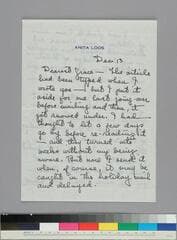 ANITA LOOS
Dec 13
Dearest Grace — The article
had been typed when I
wrote you — but I put it
aside for one last going-over
before mailing and then it
got snowed under. I had
thought to let a few days
go by before re-reading it
— and they turned into
weeks without my being
aware. But now I send it
when, of course, it may be
caught in the holiday mail
and delayed.